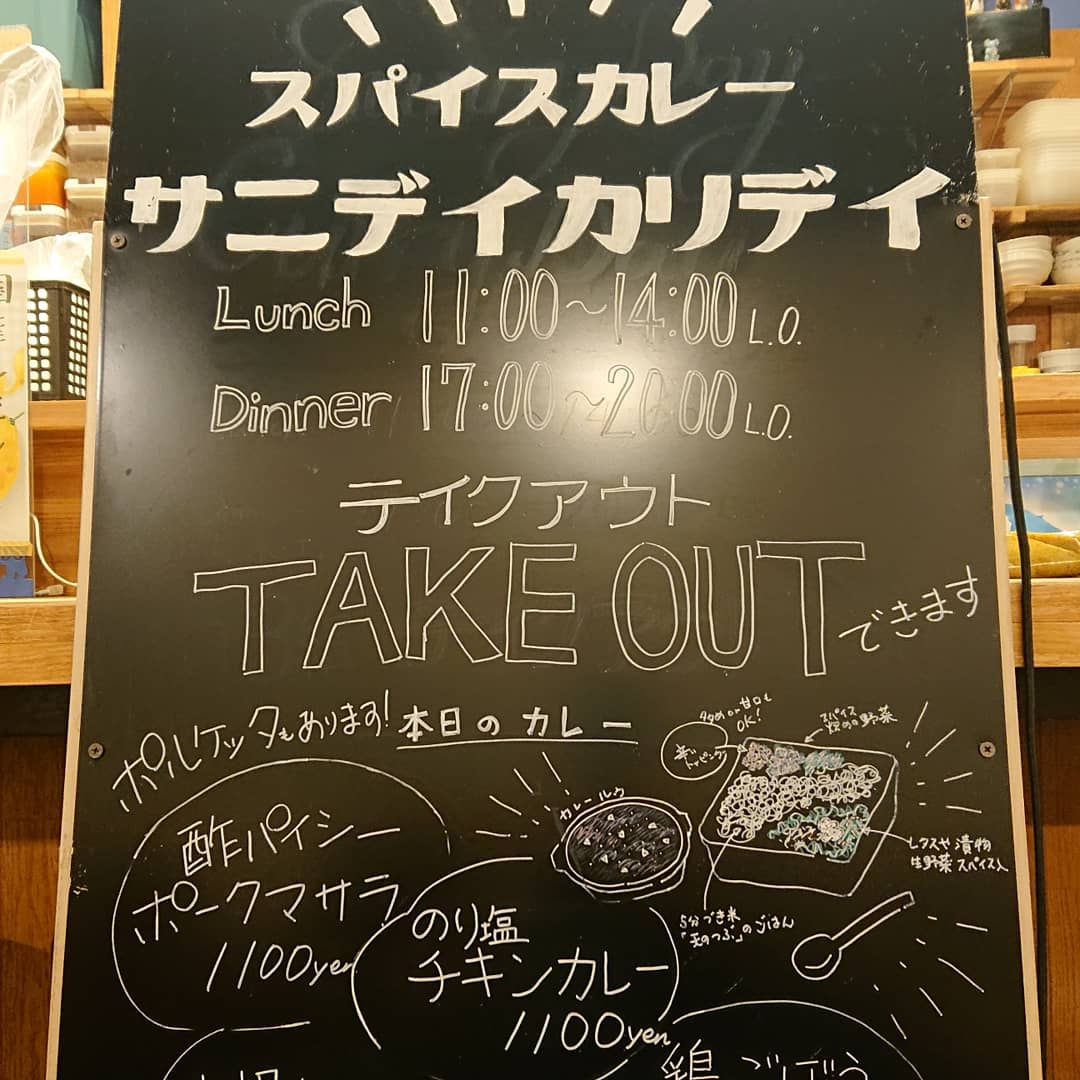 スパイスカレー
サニデイカリデイ
Lunch 11:00〜14:00 L.O.
Dinner 17:00〜20:00 L.O.
テイクアウト
TAKE OUT できます
ポルケッタもあります!
本日のカレー
酢パイシー
ポークマサラ
1100yen
のり塩
チキンカレー
1100yen
カレールウ
甘口も
OK!
トッピング
スパイス
野菜
レタスや漬物
生野菜 スパイス入
5分づき米
「天のつぶ」のごはん
鶏ごぼう